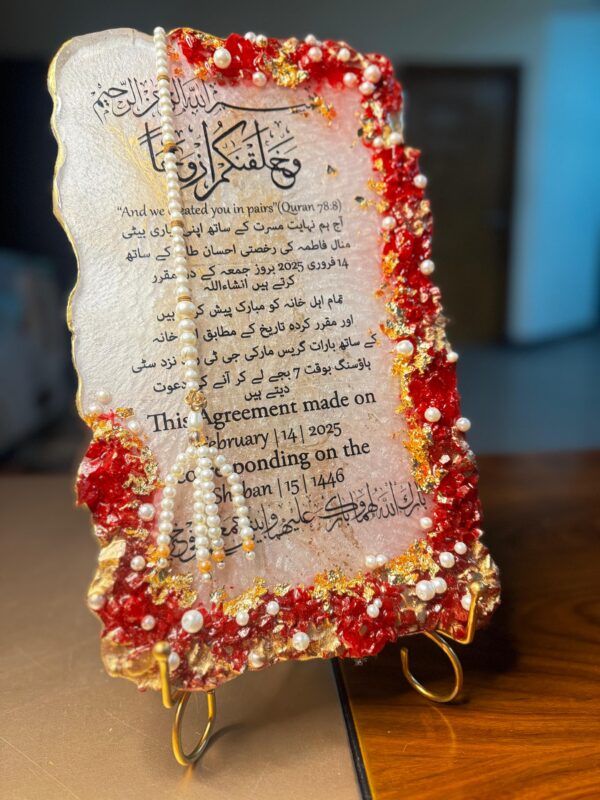 بسم الله الرحمن الرحيم
وَخَلَقْنَٰكُمْ أَزْوَٰجًا
"And we created you in pairs"(Quran 78:8)
آج ہم نہایت مسرت کے ساتھ اپنی پیاری بیٹی
منال فاطمہ کی رخصتی احسان کے ساتھ
14 فروری 2025 بروز جمعہ کے دن مقرر
کرتے ہیں انشاءاللہ
تمام اہل خانہ کو مبارک پیش کرتے ہیں
اور مقرر کردہ تاریخ کے مطابق اہل خانہ
کے ساتھ بارات گریس مارکی جی ٹی نزد سٹی
ہاؤسنگ بوقت 7 بجے لے کر آنے کی دعوت
دیتے ہیں
This Agreement made on
February | 14 | 2025
corresponding on the
Shaban | 15 | 1446
بارك الله لهما وبارك عليهما وجمع